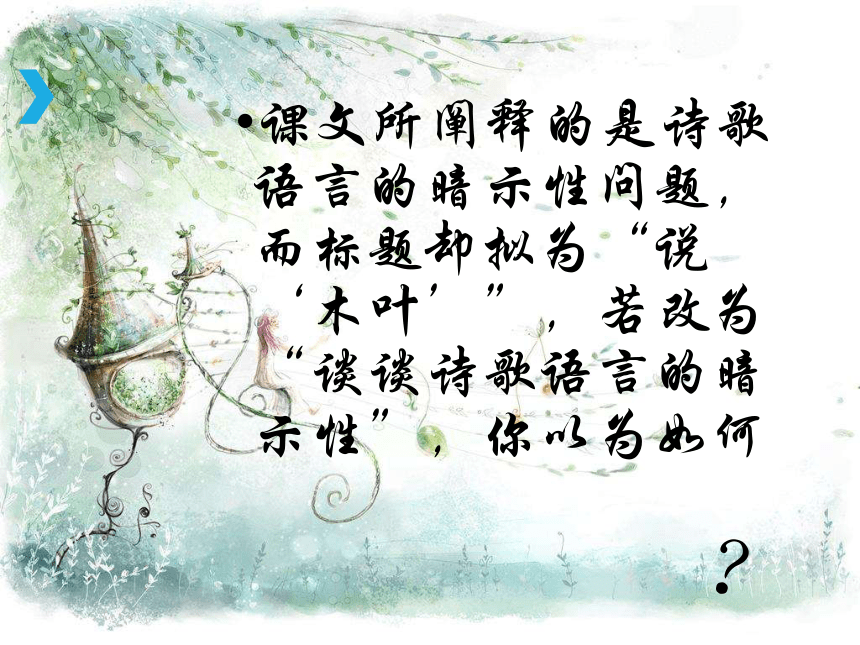 •课文所阐释的是诗歌
语言的暗示性问题，
而标题却拟为“说
‘木叶’”，若改为
“谈谈诗歌语言的暗
示性”，你以为如何
？